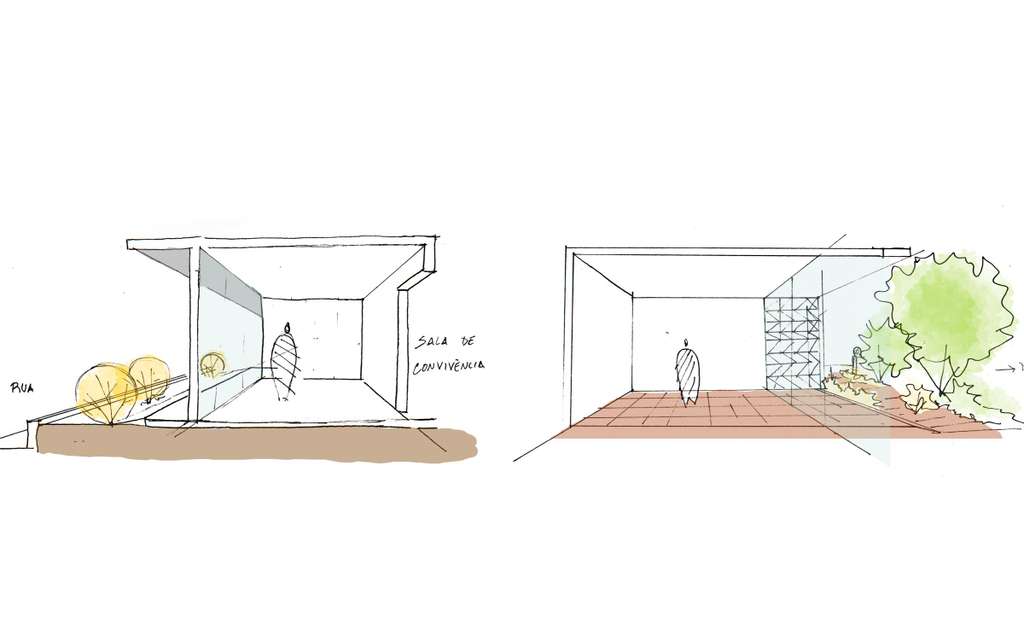 RUA
SALA DE
CONVIVÊNCIA